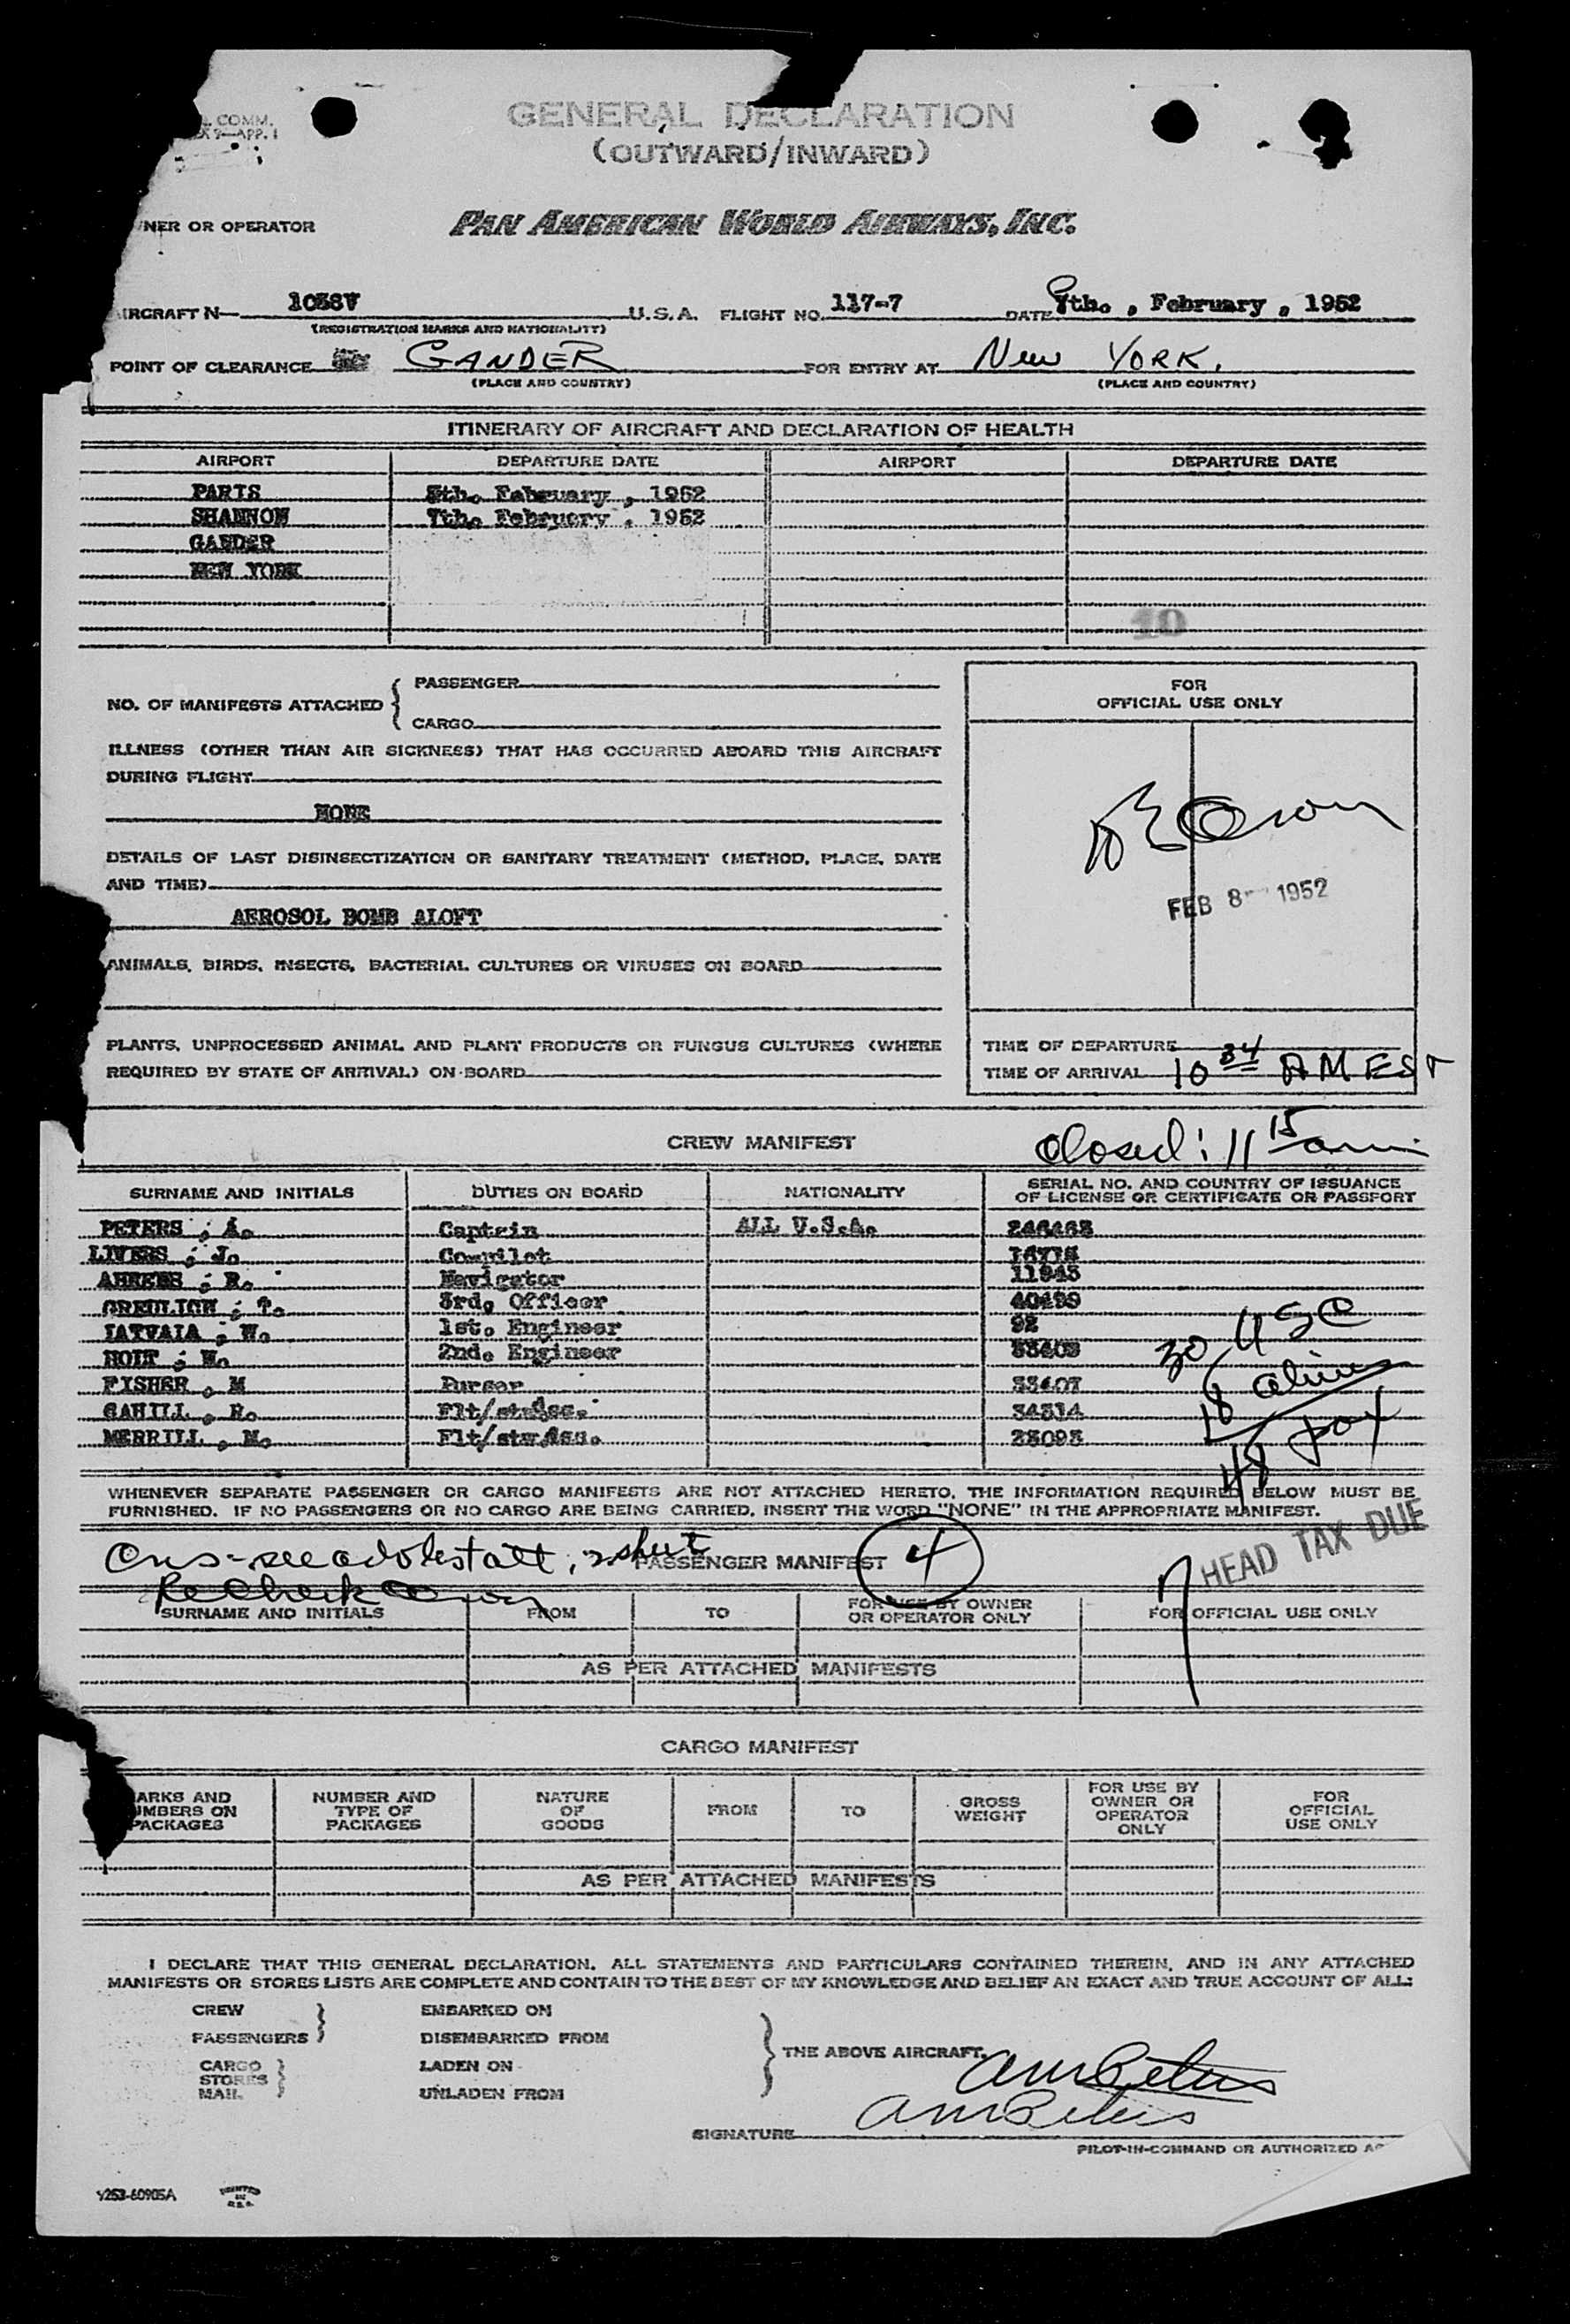 L COMM.
9—APP. 1
GENERAL DECLARATION
(OUTWARD/INWARD)
NER OR OPERATOR
PAN AMERICAN WORLD AIRWAYS, INC.
IRCRAFT N— 1038V U.S.A. FLIGHT NO. 117-7 DATE 7th. , February , 1952
(REGISTRATION MARKS AND NATIONALITY)
POINT OF CLEARANCE GANDER FOR ENTRY AT New YORK.
(PLACE AND COUNTRY) (PLACE AND COUNTRY)
ITINERARY OF AIRCRAFT AND DECLARATION OF HEALTH
AIRPORT DEPARTURE DATE AIRPORT DEPARTURE DATE
PARIS February , 1952
SHANNON 7th. February , 1952
GANDER
NEW YORK
10
NO. OF MANIFESTS ATTACHED { PASSENGER
CARGO
FOR
OFFICIAL USE ONLY
ILLNESS (OTHER THAN AIR SICKNESS) THAT HAS OCCURRED ABOARD THIS AIRCRAFT
DURING FLIGHT
NONE
DETAILS OF LAST DISINSECTIZATION OR SANITARY TREATMENT (METHOD, PLACE, DATE
AND TIME)
AEROSOL BOMB ALOFT
FEB 8 - 1952
ANIMALS, BIRDS, INSECTS, BACTERIAL CULTURES OR VIRUSES ON BOARD
PLANTS, UNPROCESSED ANIMAL AND PLANT PRODUCTS OR FUNGUS CULTURES (WHERE
REQUIRED BY STATE OF ARRIVAL) ON BOARD
TIME OF DEPARTURE
TIME OF ARRIVAL 10 34 AM EST
CREW MANIFEST
closed: 11 15 am
SURNAME AND INITIALS DUTIES ON BOARD NATIONALITY SERIAL NO. AND COUNTRY OF ISSUANCE
OF LICENSE OR CERTIFICATE OR PASSPORT
PETERS ; A. Captain ALL U.S.A. 246468
LIVERS ; J. Co-pilot
AHRENS ; R. Navigator 11943
GREULICH ; T. 3rd. Officer 40499
W. 1st. Engineer 92
HOIT ; W. 2nd. Engineer 33409
FISHER , M Purser 33407
CAHILL , R. Flt/ 34314
MERRILL , M. Flt/ 23093
30 USC
18 aliens
48 pax
WHENEVER SEPARATE PASSENGER OR CARGO MANIFESTS ARE NOT ATTACHED HERETO, THE INFORMATION REQUIRED BELOW MUST BE
FURNISHED. IF NO PASSENGERS OR NO CARGO ARE BEING CARRIED, INSERT THE WORD "NONE" IN THE APPROPRIATE MANIFEST.
HEAD TAX DUE
PASSENGER MANIFEST 4
Recheck
SURNAME AND INITIALS FROM TO FOR USE BY OWNER
OR OPERATOR ONLY FOR OFFICIAL USE ONLY
AS PER ATTACHED MANIFESTS
CARGO MANIFEST
ARKS AND
UMBERS ON
PACKAGES
NUMBER AND
TYPE OF
PACKAGES
NATURE
OF
GOODS
FROM
TO
GROSS
WEIGHT
FOR USE BY
OWNER OR
OPERATOR
ONLY
FOR
OFFICIAL
USE ONLY
AS PER ATTACHED MANIFESTS
I DECLARE THAT THIS GENERAL DECLARATION, ALL STATEMENTS AND PARTICULARS CONTAINED THEREIN, AND IN ANY ATTACHED
MANIFESTS OR STORES LISTS ARE COMPLETE AND CONTAIN TO THE BEST OF MY KNOWLEDGE AND BELIEF AN EXACT AND TRUE ACCOUNT OF ALL:
CREW EMBARKED ON
PASSENGERS DISEMBARKED FROM
THE ABOVE AIRCRAFT.
CARGO LADEN ON
STORES
MAIL UNLADEN FROM
AM Peters
AM Peters
SIGNATURE
PILOT-IN-COMMAND OR AUTHORIZED
V253-60905A
PRINTED
IN
U.S.A.